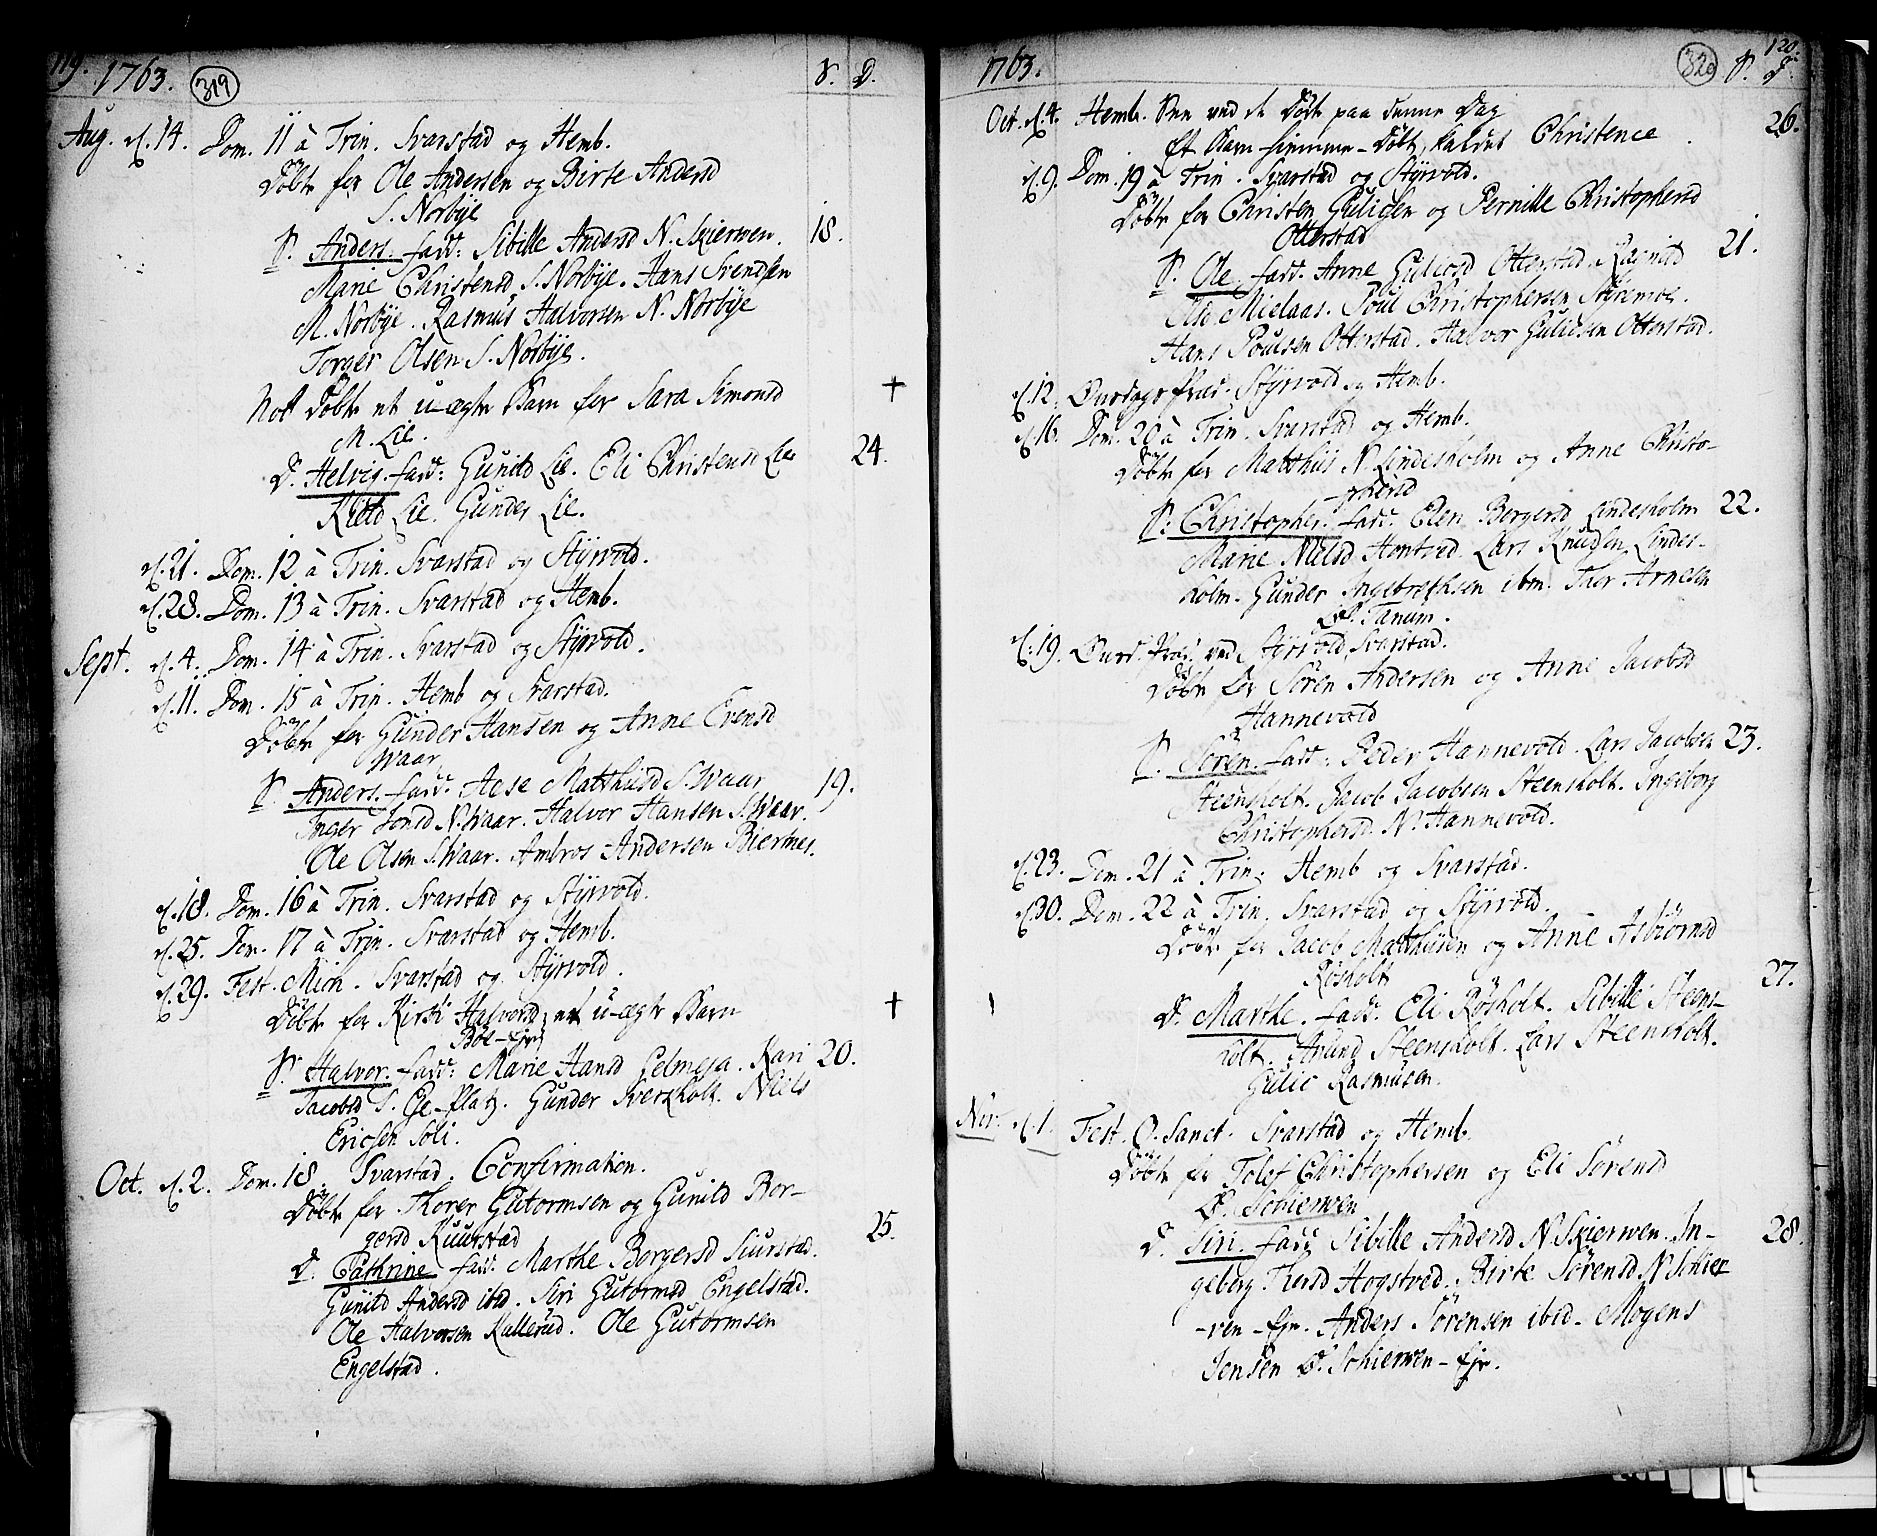 119. 1763. 319 S. D.
Aug. d. 14. Dom. 11 à Trin. Svarstad og Hemb.
Döbte for Ole Andersen og Birte Andersd
S. Norbye
S. Anders. fadd: Sibille Andersd N. Skierven. 18.
Marie Christensd S. Norbye. Hans Svendsen
M. Norbye. Rasmus Halvorsen N. Norbye
Torger Olsen S. Norbye.
Not Döbte et u-ægte Barn for Sara Simonsd +
M. Lie.
D. Helvig. fadd: Gunild Lie. Eli Christensd Lie 24.
Kield Lie. Gunder Lie.
d. 21. Dom. 12 à Trin. Svarstad og Styrvold.
d. 28. Dom. 13 à Trin. Svarstad og Hemb.
Sept. d. 4. Dom. 14 à Trin. Svarstad og Styrvold.
d. 11. Dom. 15 à Trin. Hemb og Svarstad.
Döbte for Gunder Hansen og Anne Evensd
Waar
S. Anders. fadd: Aese Matthisd S. Waar 19.
Inger Jonsd N. Waar. Halvor Hansen S. Waar.
Ole Olsen S. Waar. Ambros Andersen Biernes.
d. 18. Dom. 16 à Trin. Svarstad og Styrvold.
d. 25. Dom. 17 à Trin. Svarstad og Hemb.
d. 29. Fest. Mich. Svarstad og Styrvold.
Döbte for Kirsti Halvorsd, et u-ægte Barn +
Böe-Ejer
S. Halvor. fadd: Marie Hansd Gelmeja. Kari 20.
Jacobsd S. Ge-Platz. Gunder Sverkholt. Niels
Ericsen Soli.
Oct. d. 2. Dom. 18. Svarstad. Confirmation.
Döbte for Thorer Gutormsen og Gunild Bor-
gersd Kuurstad
D. Cathrine fadd: Marthe Borgersd Siurstad. 25.
Gunild Andersd ibid. Siri Gutormsd Engelstad.
Ole Halvorsen Kallerud. Ole Gutormsen
Engelstad.
1763. 320 S. 120. D.
Oct. d. 4. Hemb. Præ ved de Döbte paa denne Dag
Et Barn hiemme-Döbt, kaldet Christence. 26.
d. 9. Dom. 19 à Trin. Svarstad og Styrvold.
Döbte for Christen Gulicsen og Pernille Christophersd
Otterstad
S. Ole. fadd. Anne Gulicsd Otterstad. Ragnild 21.
Mielaas. Poul Christophersen Styrmoe.
Hans Poulsen Otterstad. Halvor Gulicsen Otterstad.
d. 12. Onsdags Præd. Styrvold og Hemb.
d. 16. Dom. 20 à Trin. Svarstad og Hemb.
Döbte for Matthis N. Lindesholm og Anne Christo-
phersd
S: Christopher. fadd. Elen Borgersd Lindesholm 22.
Marie Nielsd Hontved. Lars Knudsen Lindes-
holm. Gunder Ingebrethsen ibm. Thor Arnesen
V. Tanum.
d. 19. Onsd. Præd. ved Styrvold, Svarstad.
Döbte for Sören Andersen og Anne Jacobsd
Hannevold
S. Sören. fadd: Peder Hannevold. Lars Jacobsen 23.
Steensholt. Jacob Jacobsen Steensholt. Ingeborg
Christophersd. N. Hannevold.
d. 23. Dom. 21 à Trin. Hemb og Svarstad.
d. 30. Dom. 22 à Trin. Svarstad og Styrvold.
Döbte for Jacob Matthisen og Anne Asbiörnsd
Rösholt 27.
D. Marthe. fadd. Eli Rösholt. Sibille Steens-
holt. Amund Steensholt. Lars Steensholt.
Gulic Rasmusen.
Nov. d. 1. Fest. O. Sanct. Svarstad og Hemb.
Döbte for Tolef Christophersen og Eli Sörensd
V. Schierven
D. Siri. fadd. Sibille Andersd N. Skierven. In- 28.
geborg Thorsd Hogstved. Birte Sörensd N. Schier
-ven-Ejer. Anders Sörensen ibid. Mogens
Jensen V. Schierven-Ejer.